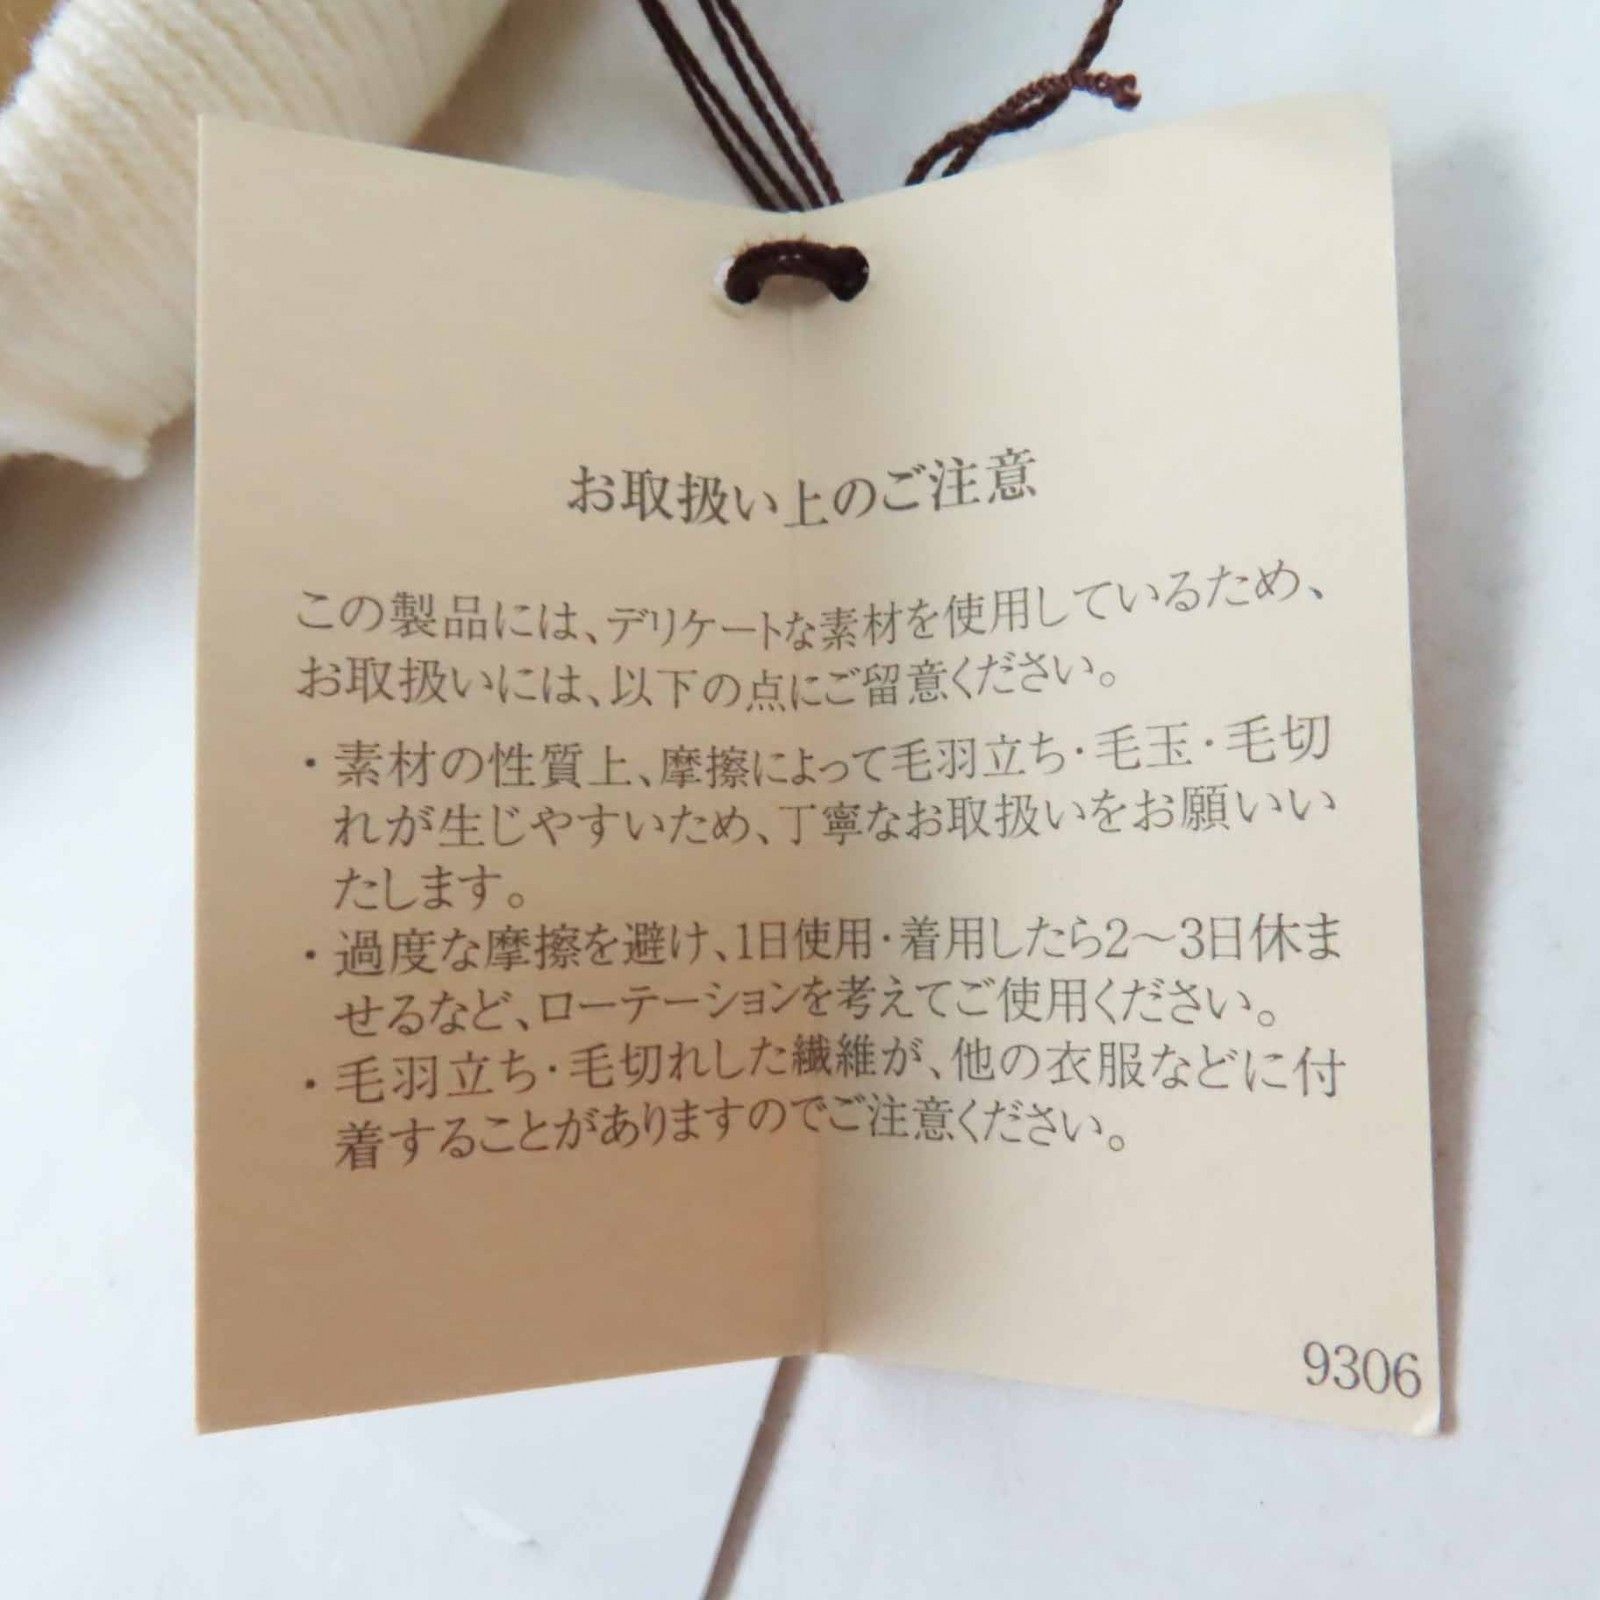 お取扱い上のご注意
この製品には、デリケートな素材を使用しているため、
お取扱いには、以下の点にご留意ください。
・素材の性質上、摩擦によって毛羽立ち・毛玉・毛切
れが生じやすいため、丁寧なお取扱いをお願いい
たします。
・過度な摩擦を避け、1日使用・着用したら2〜3日休ま
せるなど、ローテーションを考えてご使用ください。
・毛羽立ち・毛切れした繊維が、他の衣服などに付
着することがありますのでご注意ください。
9306